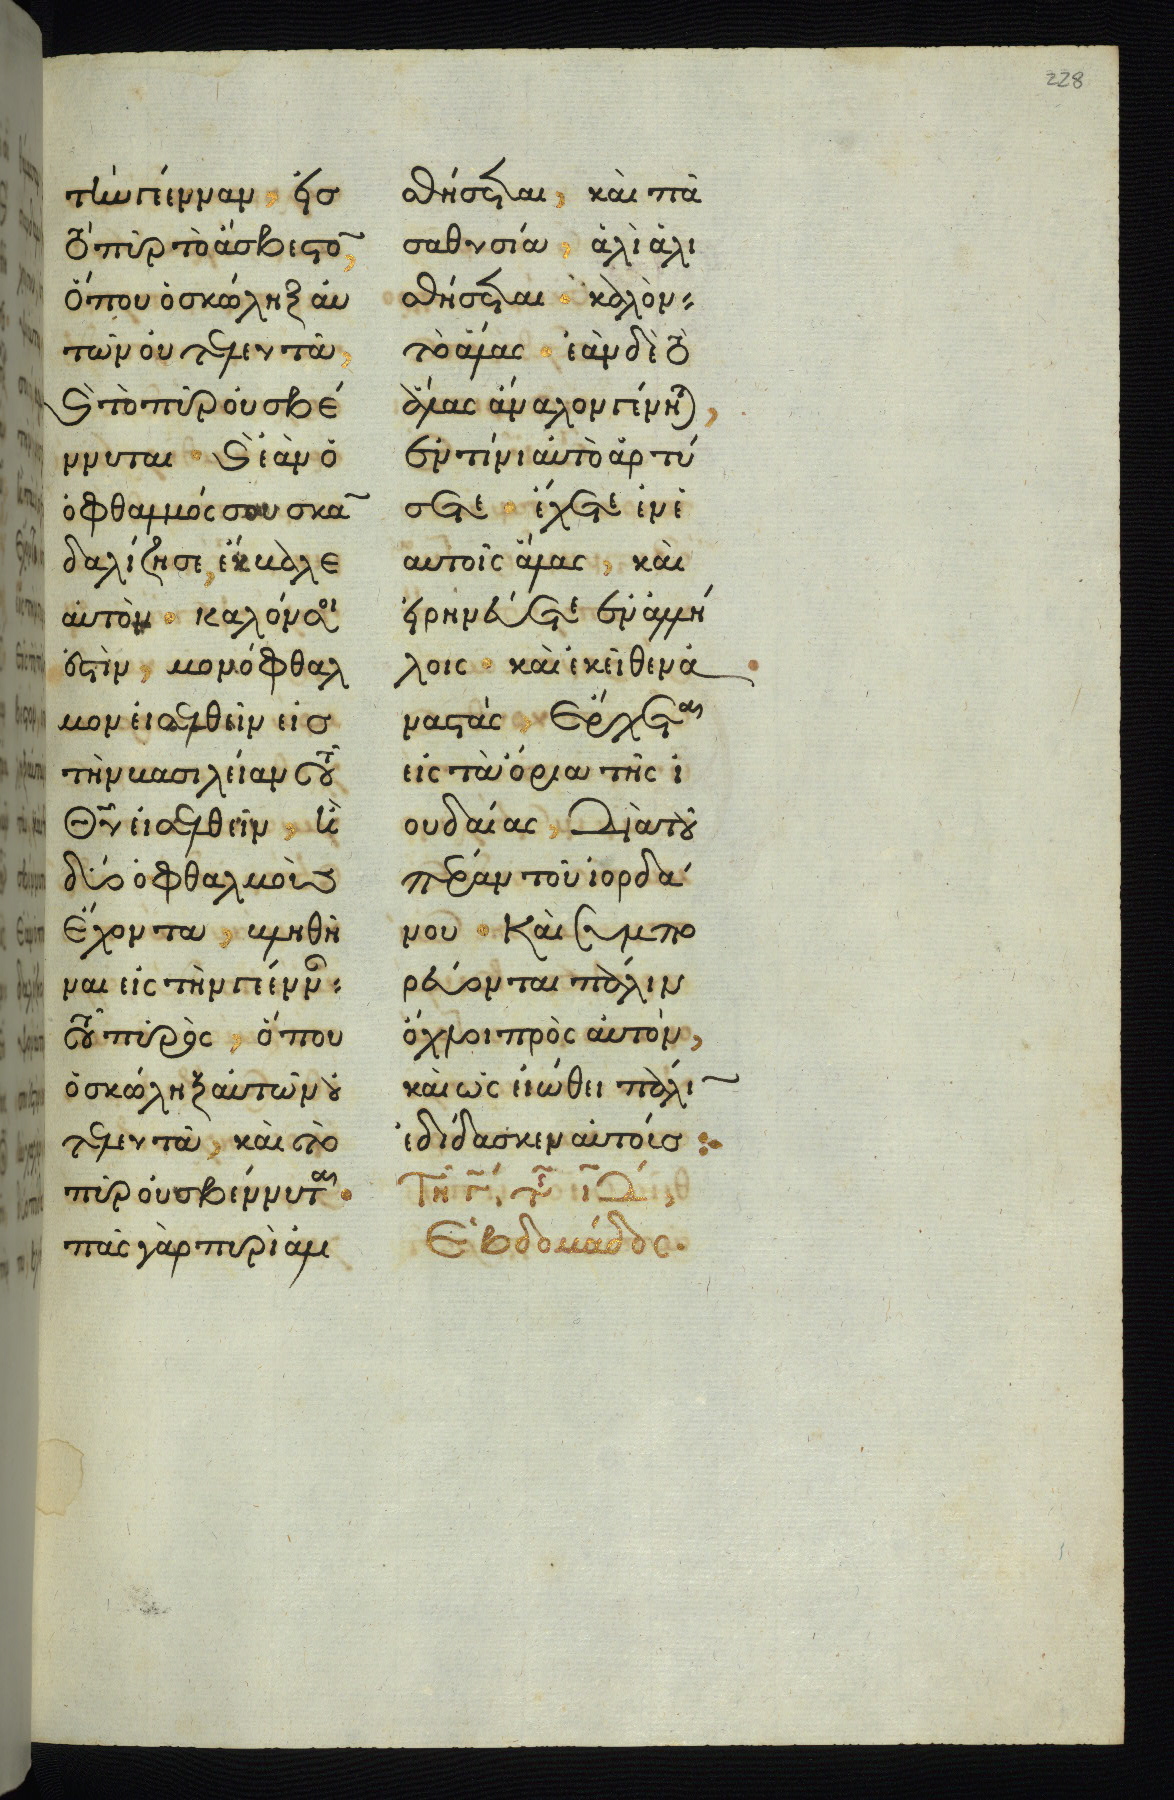 228
τὴν γέενναν, εἰς
τὸ πῦρ τὸ ἄσβεστο̄,
ὅπου ὁ σκώληξ αὐ
τῶν οὐ τελευτᾶ,
καὶ τὸ πῦρ οὐ σβέ
ννυται· καὶ ἐὰν ὁ
ὀφθαλμός σου σκᾱ
δαλίζῃ σε, ἔκβαλε
αὐτὸν· καλόν σοι
ἐστὶν, μονόφθαλ
μον εἰσελθεῖν εἰς
τὴν βασιλείαν τοῦ
Θῡ εἰσελθεῖν, ἢ
δύο ὀφθαλμοὺς
ἔχοντα, βληθῆ
ναι εἰς τὴν γέενναν
τοῦ πυρὸς, ὅπου
ὁ σκώληξ αὐτῶν οὐ
τελευτᾶ, καὶ τὸ
πῦρ οὐ σβέννυται·
πᾶς γὰρ πυρὶ ἁλι
σθήσεται, καὶ πᾶ
σα θυσία, ἁλὶ ἁλι
σθήσεται· καλὸν
τὸ ἅλας· ἐὰν δὲ τὸ
ἅλας ἄναλον γένηται,
ἐν τίνι αὐτὸ ἀρτύ
σετε· ἔχετε ἐν ἑ
αυτοῖς ἅλας, καὶ
εἰρηνεύετε ἐν ἀλλή
λοις· καὶ ἐκεῖθεν ἀ
ναστάς, ἔρχεται
εἰς τὰ ὅρια τῆς ἰ
ουδαίας, διὰ τοῦ
πέραν τοῦ ἰορδά
νου· Καὶ συμπο
ρεύονται πάλιν
ὄχλοι πρὸς αὐτόν,
καὶ ὡς εἰώθει πάλῑ
ἐδίδασκεν αὐτούς:
Τῇ γ̄, τῆς ιδ,
Ἑβδομάδος.